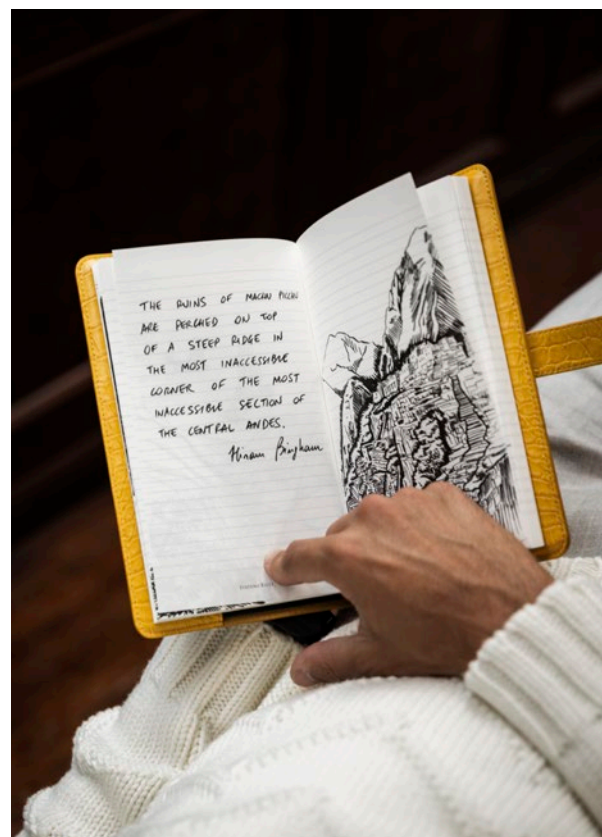 THE RUINS OF MACHU PICCHU
ARE PERCHED ON TOP
OF A STEEP RIDGE IN
THE MOST INACCESSIBLE
CORNER OF THE MOST
INACCESSIBLE SECTION OF
THE CENTRAL ANDES.
Hiram Bingham